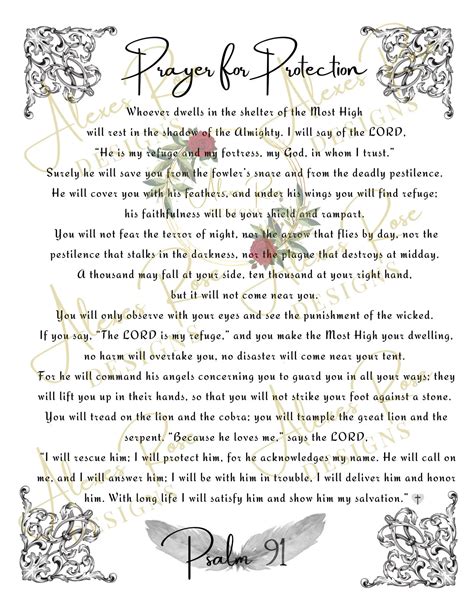 Prayer for Protection
Whoever dwells in the shelter of the Most High
will rest in the shadow of the Almighty. I will say of the LORD,
“He is my refuge and my fortress, my God, in whom I trust.”
Surely he will save you from the fowler’s snare and from the deadly pestilence.
He will cover you with his feathers, and under his wings you will find refuge;
his faithfulness will be your shield and rampart.
You will not fear the terror of night, nor the arrow that flies by day, nor the
pestilence that stalks in the darkness, nor the plague that destroys at midday.
A thousand may fall at your side, ten thousand at your right hand,
but it will not come near you.
You will only observe with your eyes and see the punishment of the wicked.
If you say, “The LORD is my refuge,” and you make the Most High your dwelling,
no harm will overtake you, no disaster will come near your tent.
For he will command his angels concerning you to guard you in all your ways; they
will lift you up in their hands, so that you will not strike your foot against a stone.
You will tread on the lion and the cobra; you will trample the great lion and the
serpent. “Because he loves me,” says the LORD,
“I will rescue him; I will protect him, for he acknowledges my name. He will call on
me, and I will answer him; I will be with him in trouble, I will deliver him and honor
him. With long life I will satisfy him and show him my salvation.”
Psalm 91
Alexes Rose
DESIGNS
Alexes Rose
DESIGNS
Alexes Rose
DESIGNS
Alexes Rose
DESIGNS
Alexes Rose
DESIGNS
Alexes Rose
DESIGNS